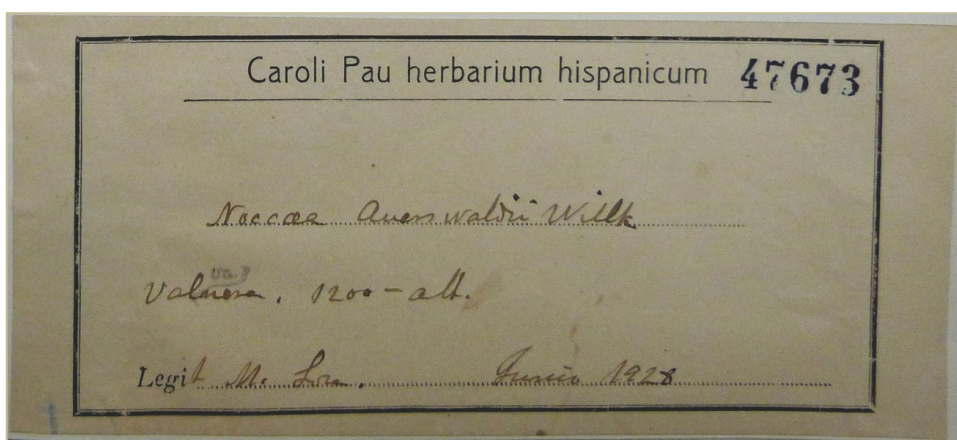 Caroli Pau herbarium hispanicum 47673
Noccaea Auerswaldii Willk
Valnera. 1200 - alt.
Legit M. Losa. Junio 1928